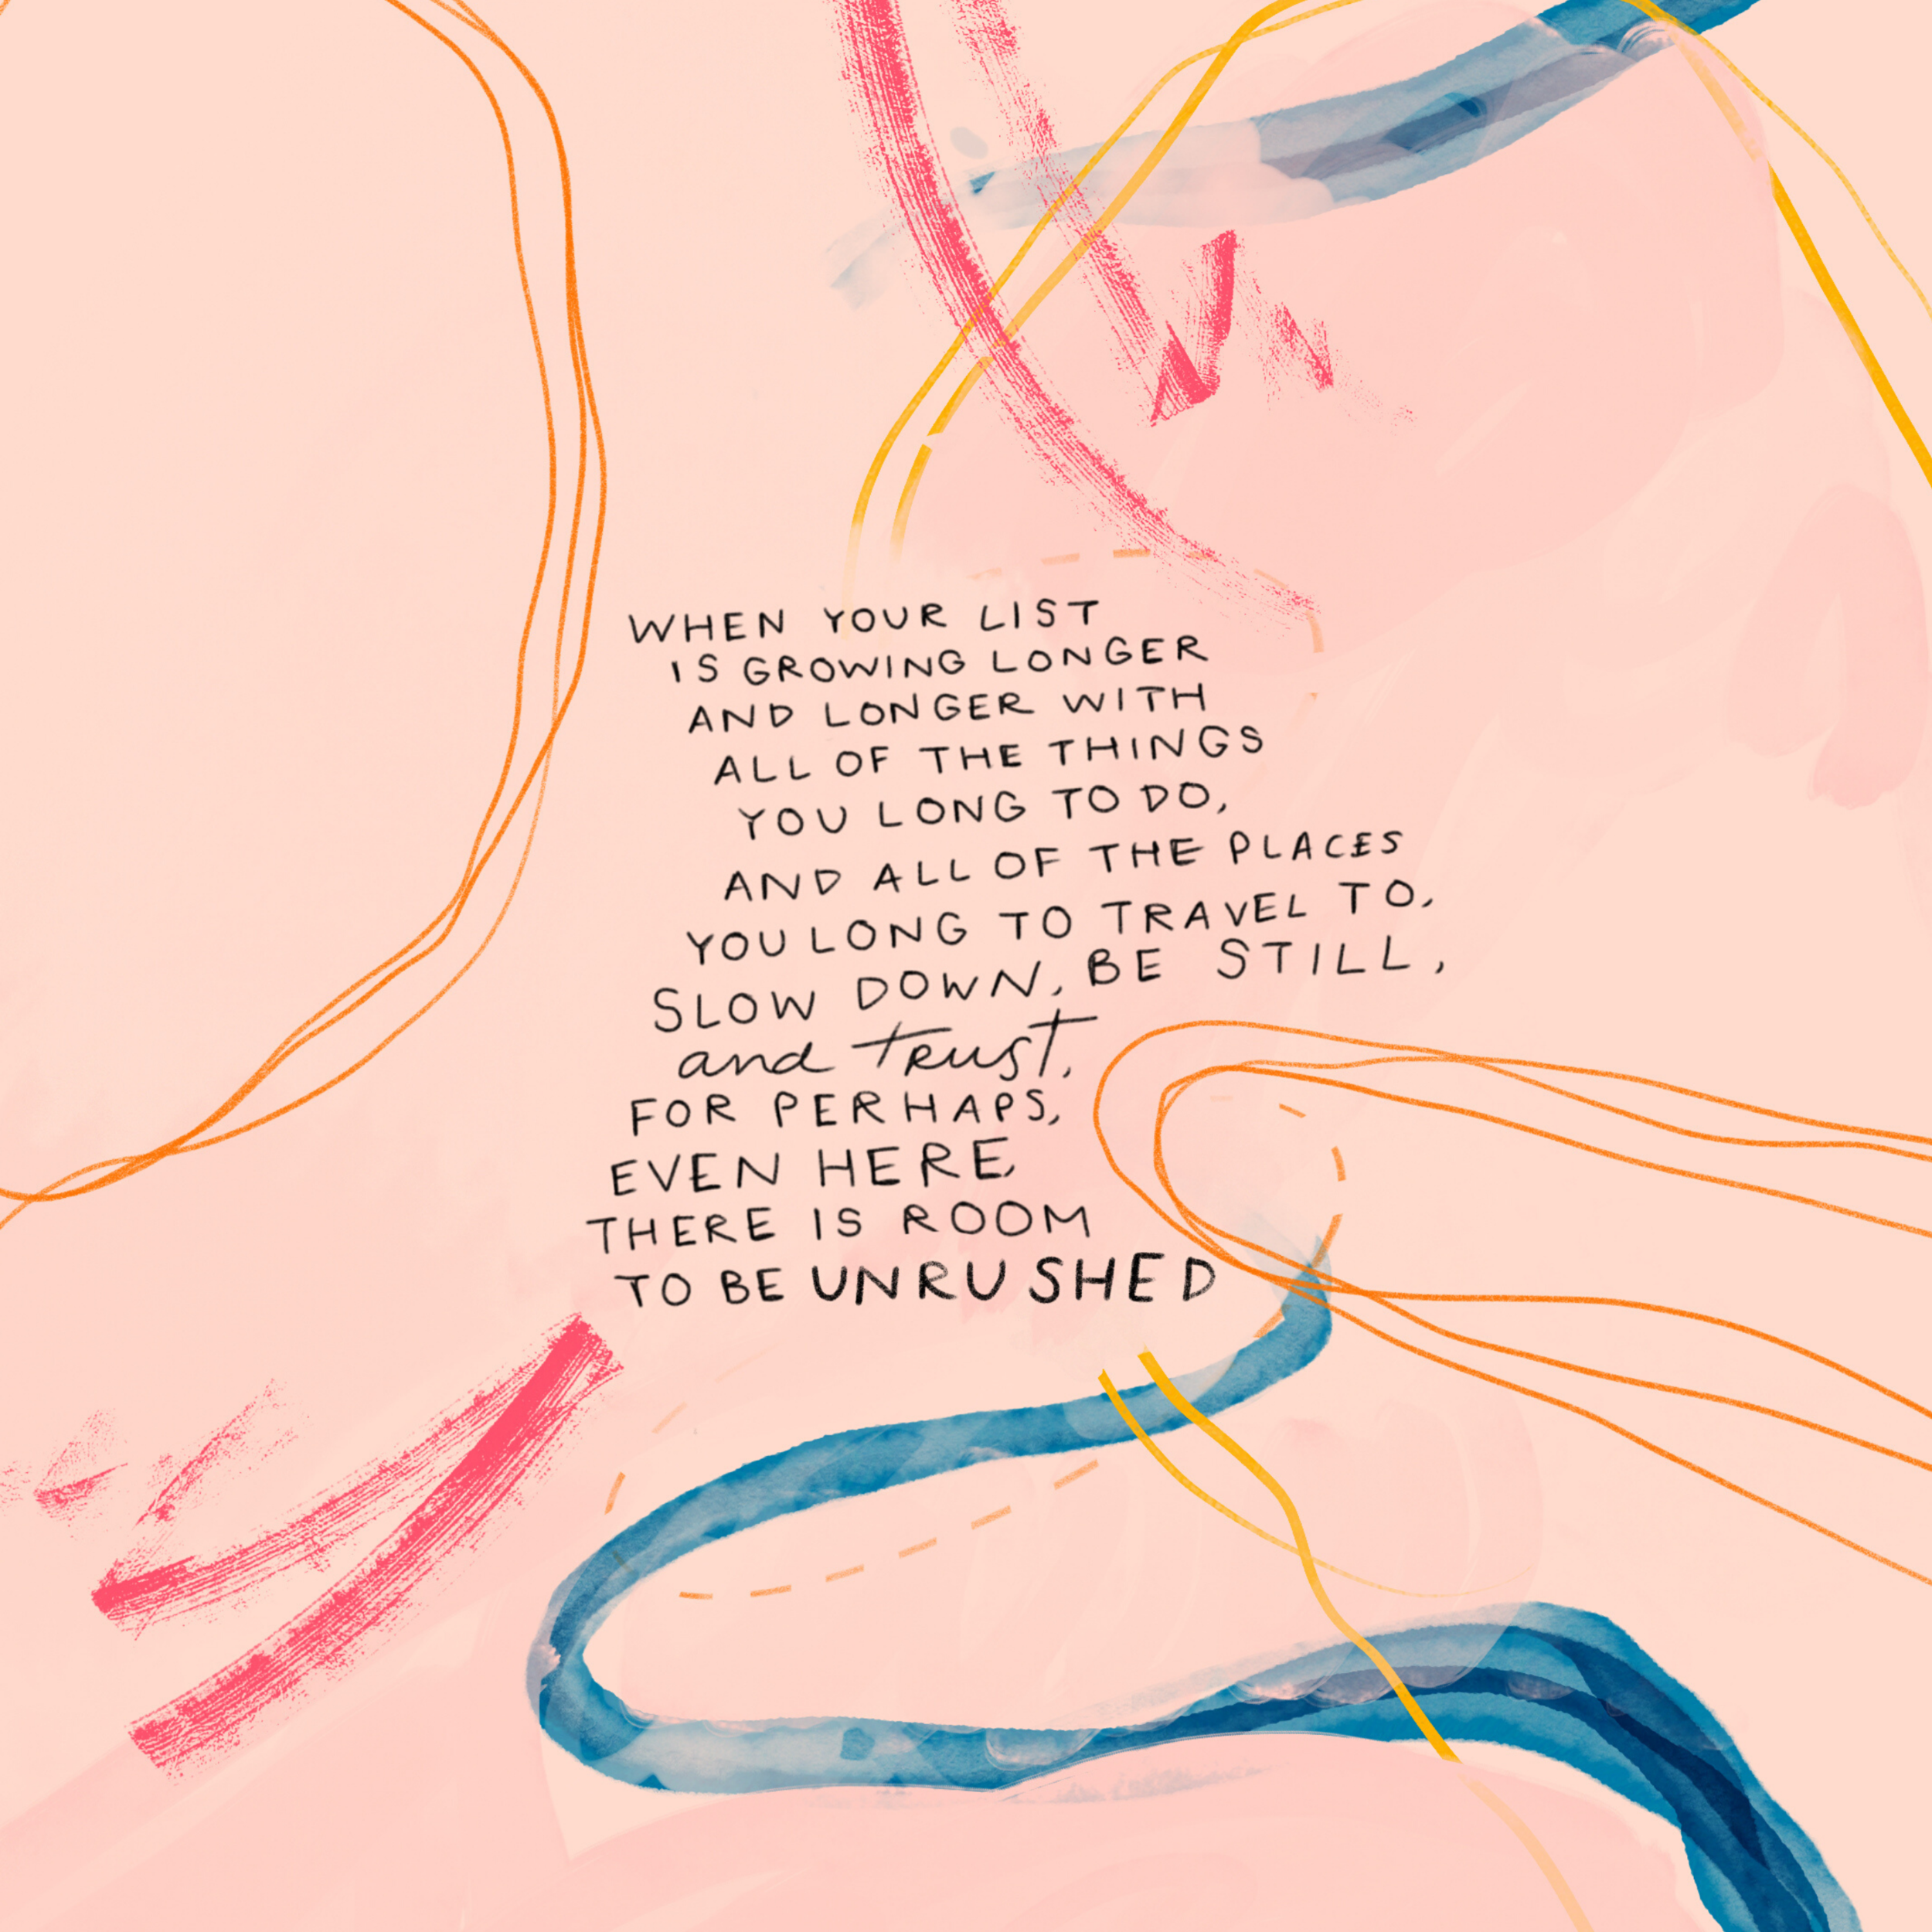 WHEN YOUR LIST
IS GROWING LONGER
AND LONGER WITH
ALL OF THE THINGS
YOU LONG TO DO,
AND ALL OF THE PLACES
YOU LONG TO TRAVEL TO,
SLOW DOWN, BE STILL,
and trust,
FOR PERHAPS,
EVEN HERE,
THERE IS ROOM
TO BE UNRUSHED